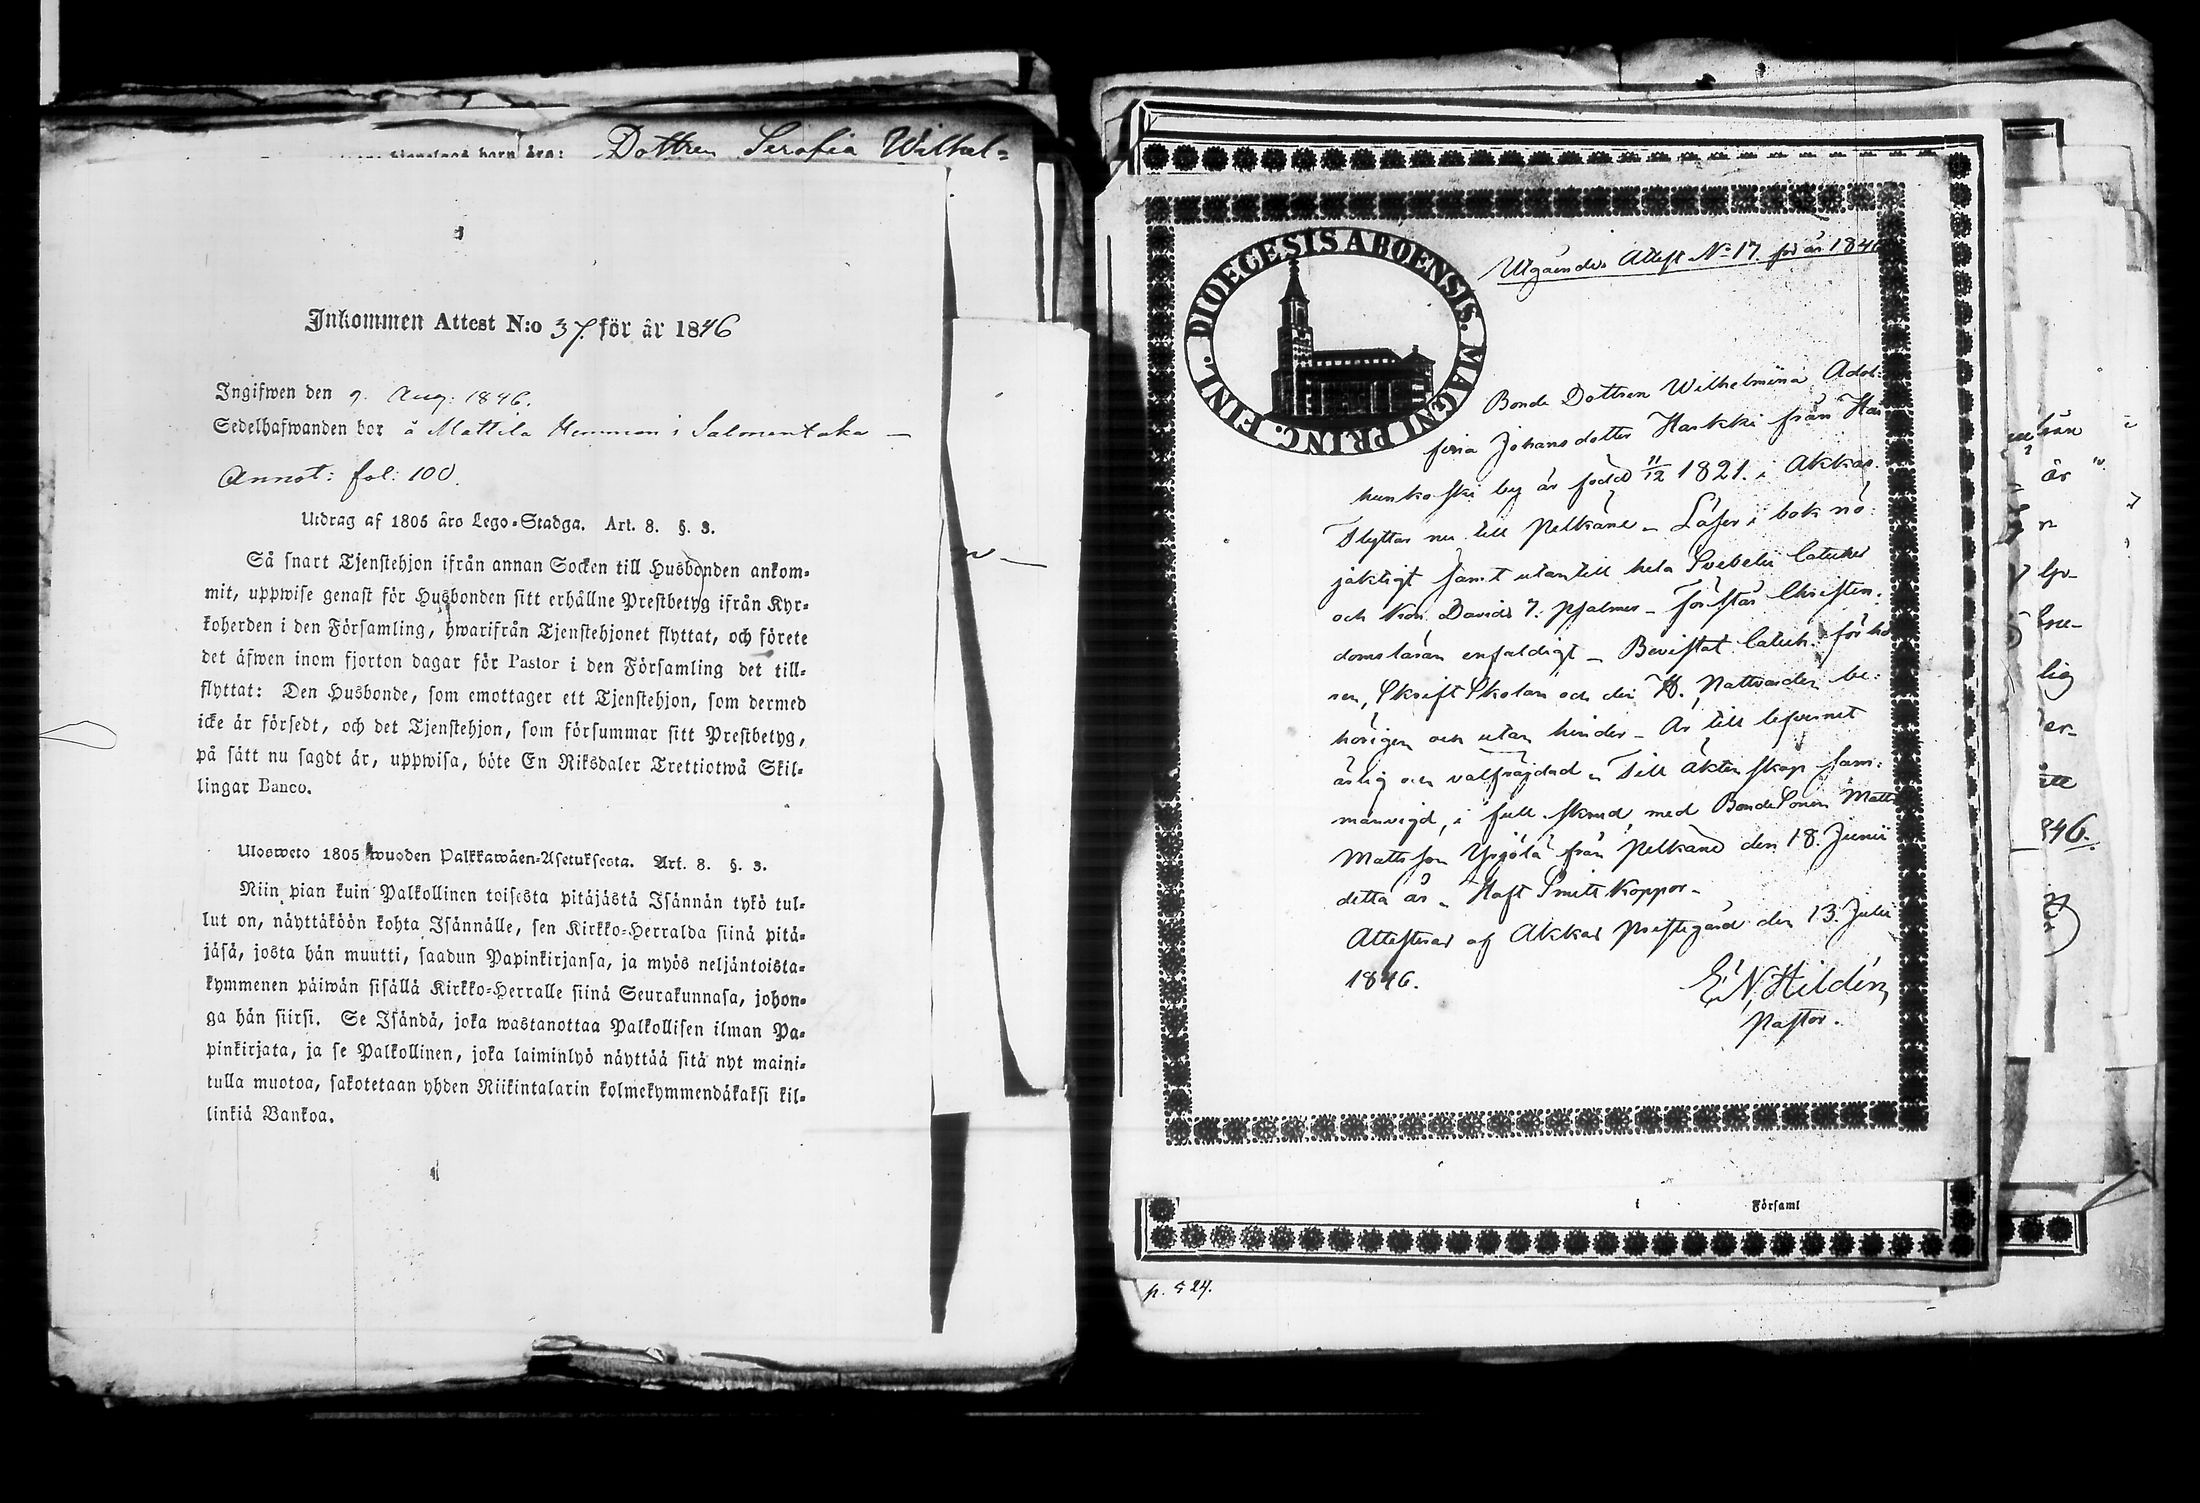 Dottren Serafia Wilhel=
Inkommen Attest N:o 37. för år 1846
Ingifwen den 9. Aug: 1846.
Sedelhafwanden bor å Mattila Hemman i Salmentaka —
Annot: fol: 100.
Utdrag af 1805 års Lego-Stadga. Art. 8. §. 3.
Så snart Tjenstehjon ifrån annan Socken till Husbonden ankom=
mit, uppwise genast för Husbonden sitt erhållne Prestbetyg ifrån Kyr=
koherden i den Församling, hwarifrån Tjenstehjonet flyttat, och förete
det äfwen inom fjorton dagar för Pastor i den Församling det till=
flyttat: Den Husbonde, som emottager ett Tjenstehjon, som dermed
icke är försedt, och det Tjenstehjon, som försummar sitt Prestbetyg,
på sätt nu sagdt är, uppwisa, böte En Riksdaler Trettiotwå Skil=
lingar Banco.
Ulosweto 1805 wuoden Palkkawäen-Asetuksesta. Art. 8. §. 3.
Niin pian kuin Palkollinen toisesta pitäjästä Isännän tykö tul=
lut on, näyttäköön kohta Isännälle, sen Kirkko-Herralda siinä pitä=
jäsä, josta hän muutti, saadun Papinkirjansa, ja myös neljäntoista=
kymmenen päiwän sisällä Kirkko-Herralle siinä Seurakunnasa, johon=
ga hän siirsi. Se Isändä, joka wastanottaa Palkollisen ilman Pa=
pinkirjata, ja se Palkollinen, joka laiminlyö näyttää sitä nyt maini=
tulla muotoa, sakotetaan yhden Riikintalarin kolmekymmendäkaksi kil=
linkiä Bankoa.
DIOECESIS ABOENSIS. MAGNI PRINC. FINL.
Utgående Attest No 17. för år 1846
Bonde Dottren Wilhelmina Adol=
fina Johansdotter Harkki från Hau
hunkoski by är född 11/12 1821. i Akkas.
Flyttar nu till Pelkäne – Läser i bok nö=
jaktigt samt utantill hela Svebelii Cateches
och Kon. Davids 7. psalmer – Förstår Christen=
domsläran enfaldigt – Bevistat Catech. förhö
ren, Skrift Skolan och den H. Nattvarden be=
hörigen och utan hinder – Är till lefvernet
ärlig och välfräjdad – Till äktenskap sam=
manvigd, i full skrud, med BondeSonen Matts
Mattsson Yrjölä från Pelkäne den 18. Junii
detta år – Haft Smitt Koppor –
Attesterar af Akkas prestegård den 13. Julii
1846.
E. N. Hildén,
Pastor.
i Församl
p. 524.
är
lig
er-
846.